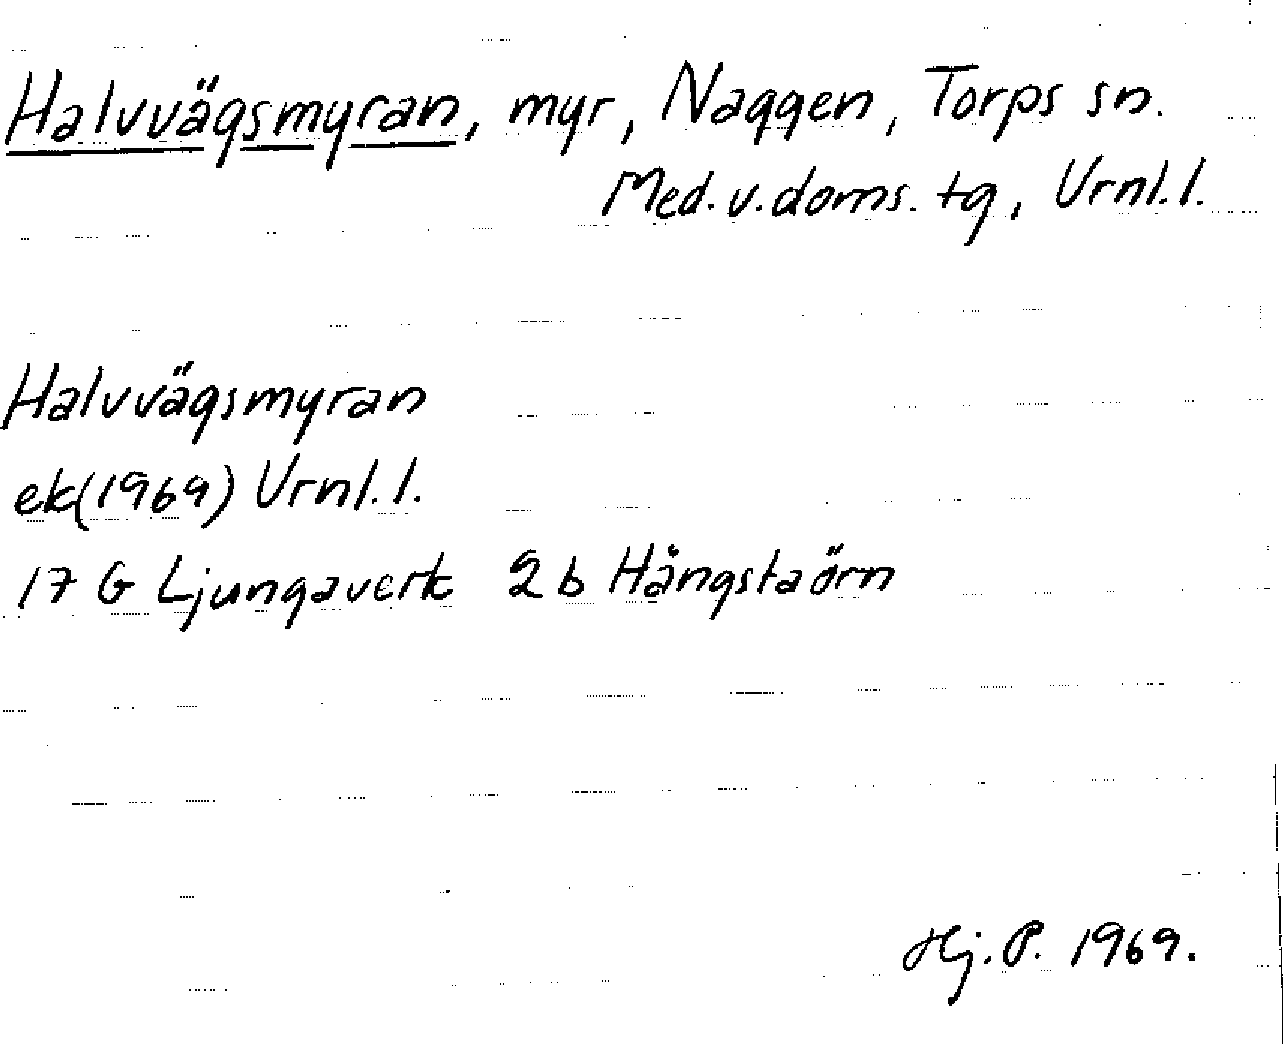 Halvvägsmyran, myr, Naggen, Torps sn.
Med. v. doms. tg, Vrnl. l.
Halvvägsmyran
ek (1969) Vrnl. l.
17 G Ljungaverk 2 b Hångstaörn
Hj. P. 1969.